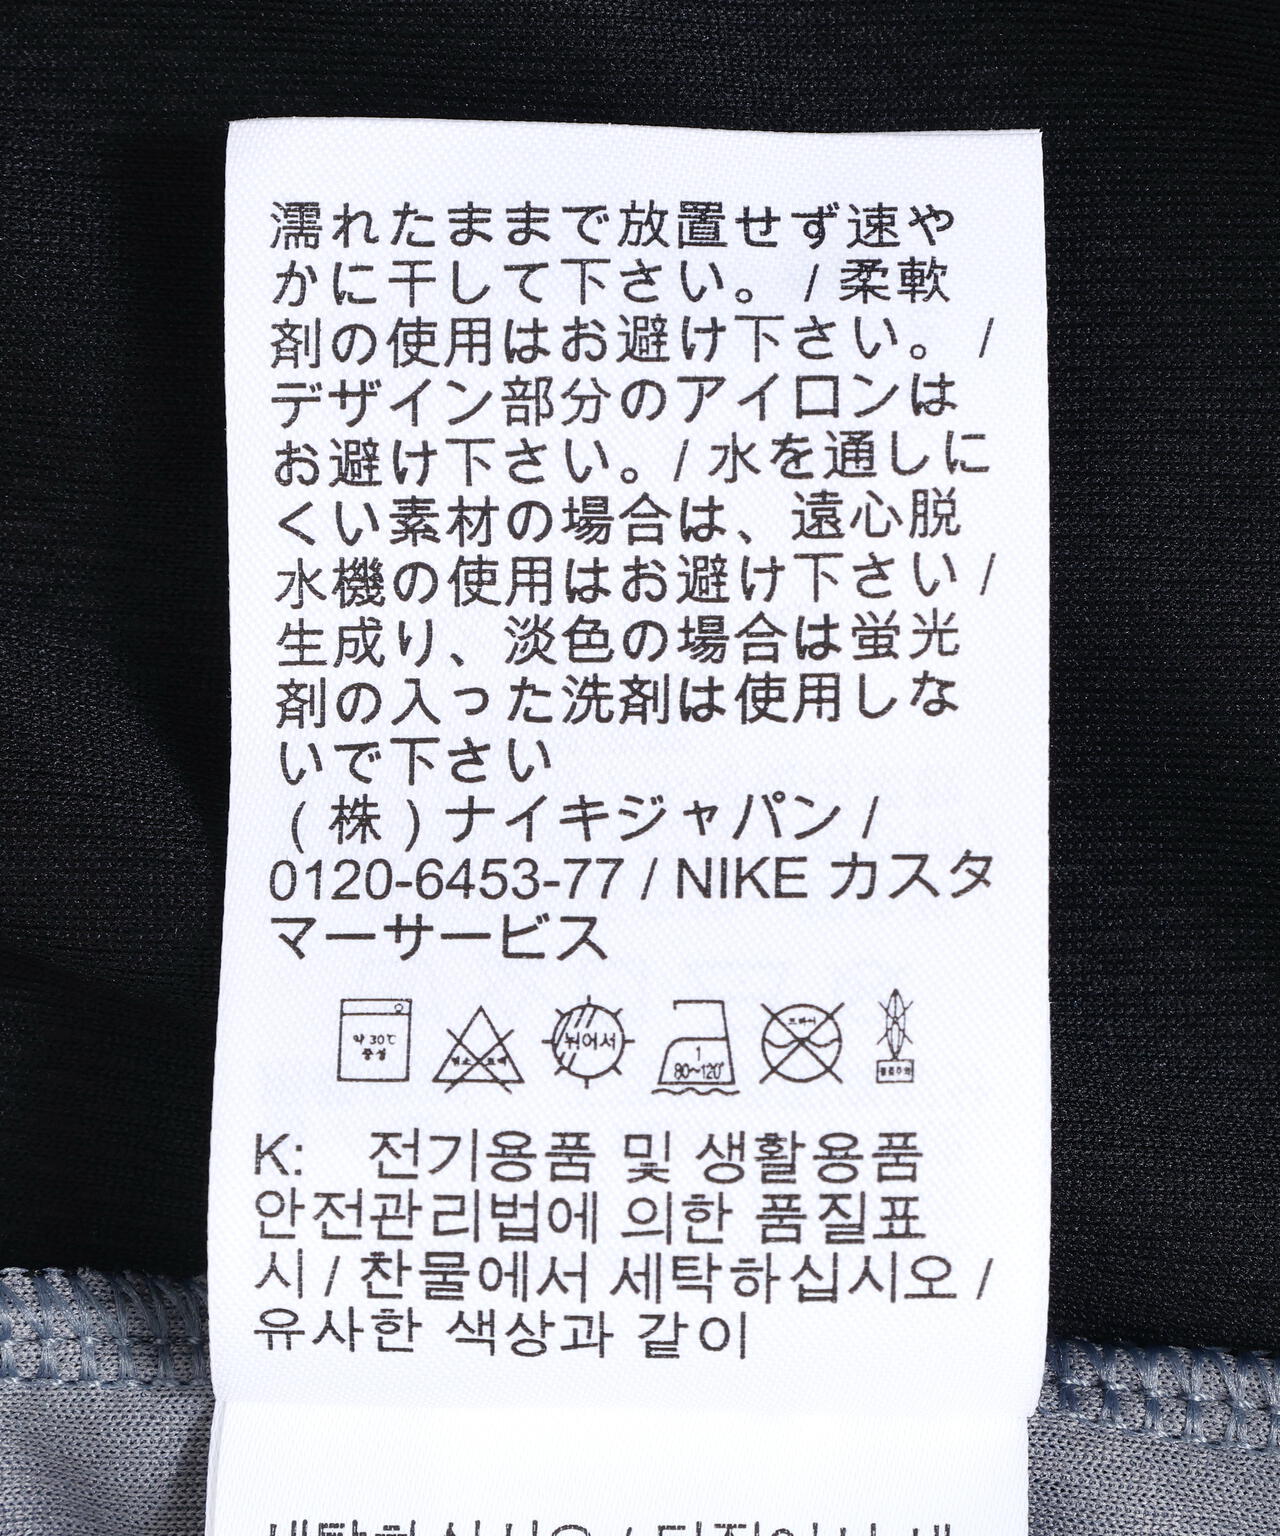 濡れたままで放置せず速や
かに干して下さい。 / 柔軟
剤の使用はお避け下さい。 /
デザイン部分のアイロンは
お避け下さい。/ 水を通しに
くい素材の場合は、遠心脱
水機の使用はお避け下さい /
生成り、淡色の場合は蛍光
剤の入った洗剤は使用しな
いで下さい
( 株 ) ナイキジャパン /
0120-6453-77 / NIKE カスタ
マーサービス
약 30℃
중성
뉘어서
드라이
1
80~120°
K: 전기용품 및 생활용품
안전관리법에 의한 품질표
시 / 찬물에서 세탁하십시오 /
유사한 색상과 같이